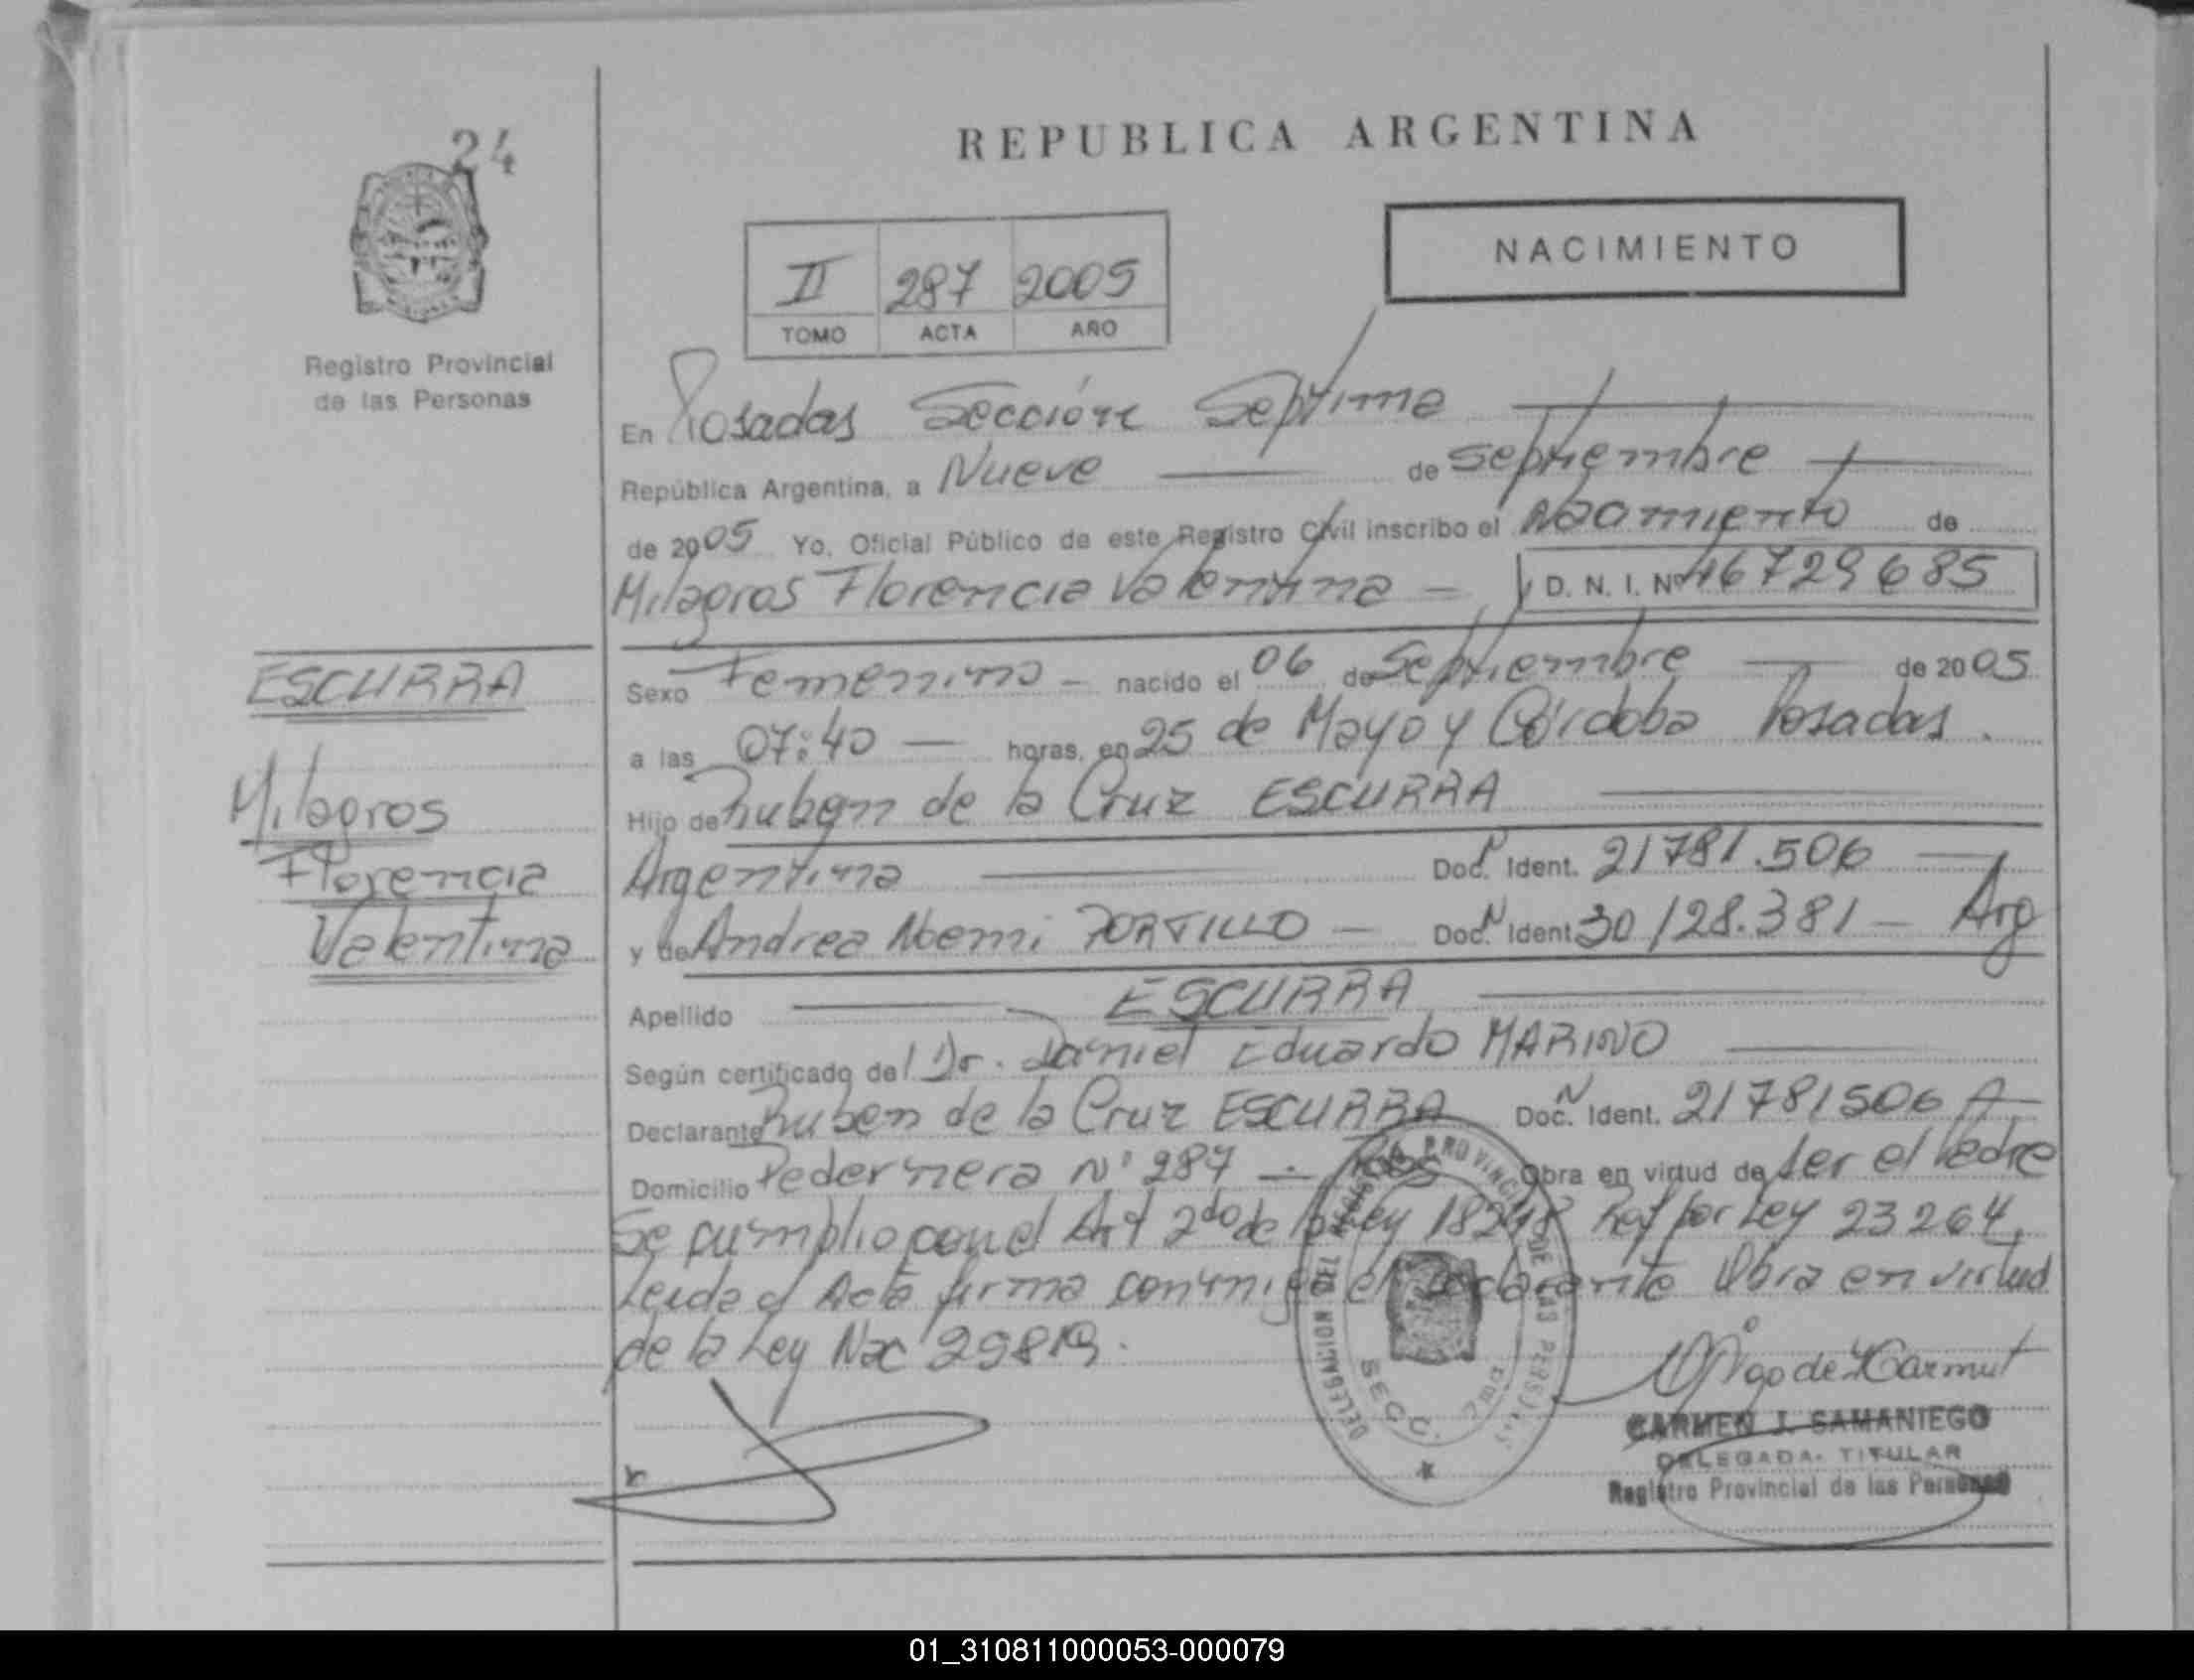 24
REPUBLICA ARGENTINA
NACIMIENTO
II 287 2005
TOMO ACTA AÑO
Registro Provincial
de las Personas
En Posadas Sección Septima
República Argentina, a Nueve de septiembre
de 2005 Yo, Oficial Público de este Registro Civil inscribo el Nacimiento de
Milagros Florencia Valentina - D. N. I. Nº 46729685
ESCURRA
Milagros
Florencia
Valentina
Sexo Femenino - nacido el 06 de Septiembre de 2005
a las 07:40 - horas, en 25 de Mayo y Córdoba Posadas.
Hijo de Ruben de la Cruz ESCURRA
Argentina Doc. Ident. 21781.506
y de Andrea Noemi PORTILLO - Doc. Ident 30128.381 - Arg
Apellido ESCURRA
Según certificado del Dr. Daniel Eduardo MARINO
Declarante Ruben de la Cruz ESCURRA Doc. Ident. 21781506 A
Domicilio Pedernera Nº 287 - Pdas Obra en virtud de ser el Padre
Se cumplio con el Art 2do de la Ley 18248 Ref por Ley 23264,
Leida el Acta firma conmigo el declarante Obra en virtud
de la Ley Nac
DELEGACION DEL REGISTRO PROVINCIAL DE LAS PERSONAS
SECC.
CARMEN J. SAMANIEGO
DELEGADA TITULAR
Registro Provincial de las Personas
01_310811000053-000079